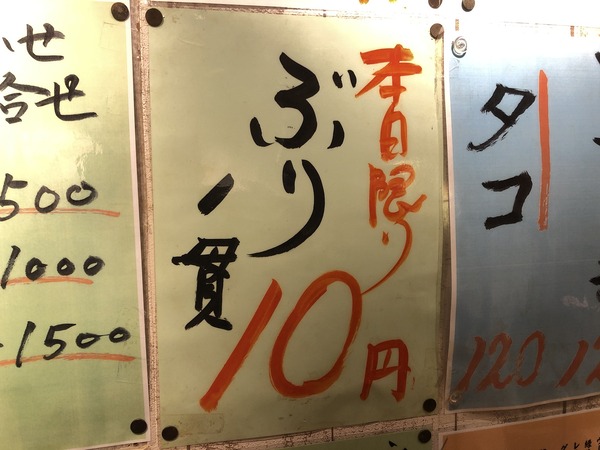 合せ
500
1000
1500
本日限り
ぶり
一貫
10円
タコ
120